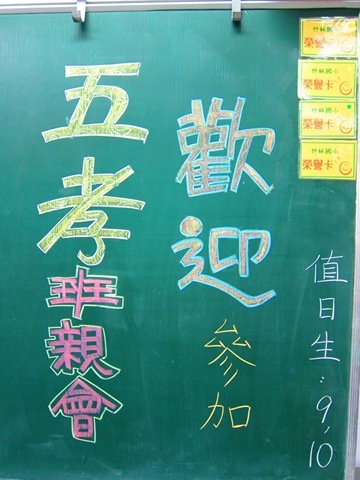 竹林國小
榮譽卡
竹林國小
榮譽卡
竹林國小
榮譽卡
竹林國小
榮譽卡
值日生:9,10
歡迎參加
五孝班親會